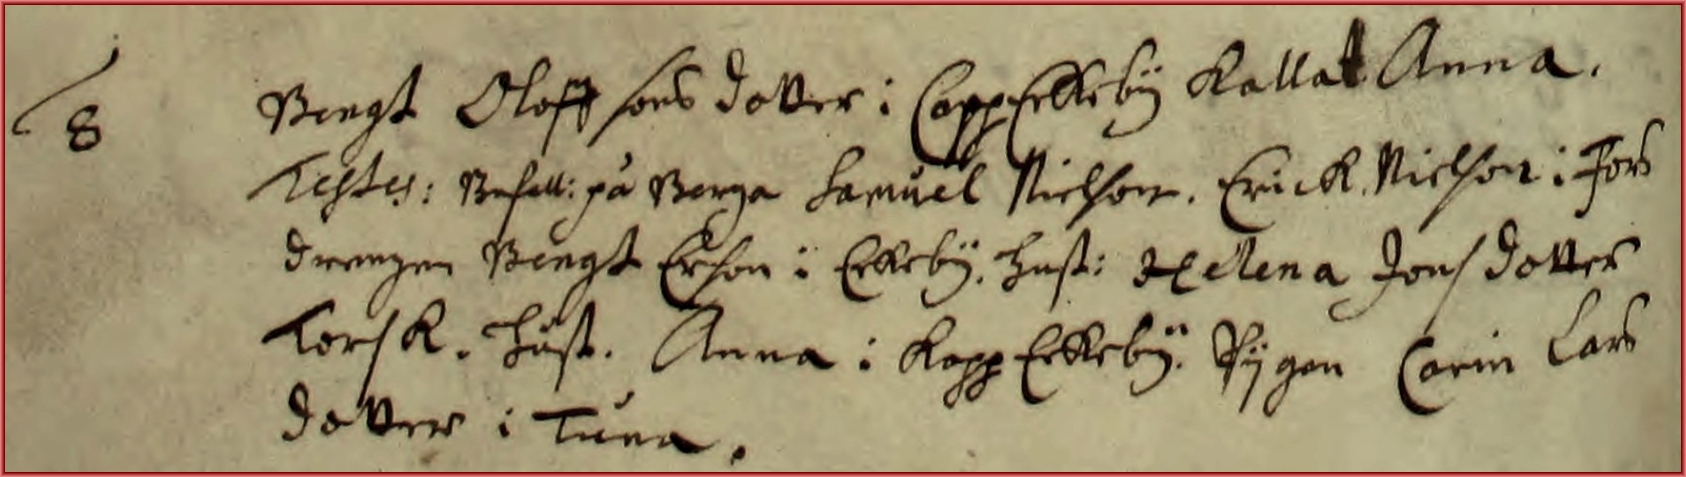 8 Bengt Oloffsons dotter i CappErkeby Kallat Anna.
Testes: Befall: på Berga Samuel Nielson. Erick Nielson i Fors
drengen Bengt Erson i Erkeby. Hust: Helena Jonsdotter
Torsk. Hust. Anna i KappErkeby. Pijgan Carin Lars
dotter i Tuna.